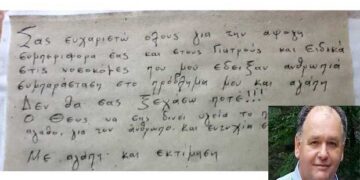 Σας ευχαριστώ όλους για την αψογη
συμπεριφορα σας και στους Γιατρούς και Ειδικά
στις νοσοκόμες που μου έδειξαν ανθρωπιά
συμπαράσταση στο πρόβλημα μου και αγάπη
Δεν θα σας ξεχάσω ποτέ!!!
Ο Θεος να σας δίνει υγεία το
αγαθο, για τον άνθρωπο και ευτυχία
Με αγάπη και εκτίμηση